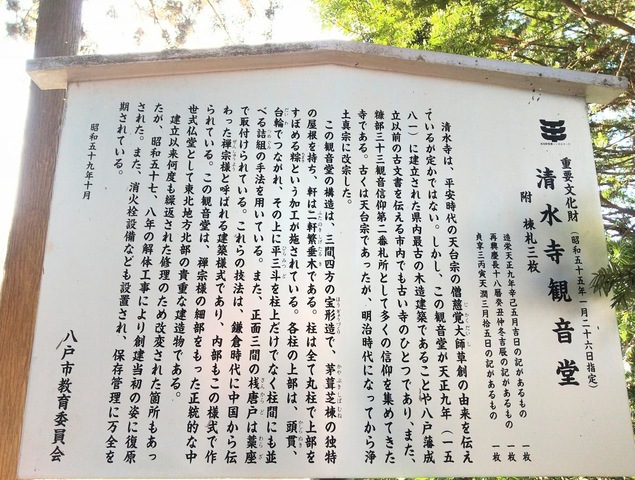 重要文化財(昭和五十五年一月二十六日指定)
清水寺観音堂
附 棟札三枚
造栄天正九年辛己五月吉日の記があるもの 一枚
再興慶長十八暦癸丑仲冬吉辰の記があるもの 一枚
貞享三丙寅天潤三月拾五日の記があるもの 一枚
清水寺は、平安時代の天台宗の僧慈覚大師草創の由来を伝え
ているが定かではない。しかし、この観音堂が天正九年(一五
八一)に建立された県内最古の木造建築であることや八戸藩成
立以前の古文書を伝える市内でも古い寺のひとつであり、また、
糠部三十三観音信仰第二番札所として多くの信仰を集めてきた
寺である。古くは天台宗であったが、明治時代になってから浄
土真宗に改宗した。
この観音堂の構造は、三間四方の宝形造で、茅葺芝棟の独特
の屋根を持ち、軒は二軒繁垂木である。柱は全て丸柱で上部を
すぼめる粽という加工が施されている。各柱の上部は、頭貫、
台輪でつながれ、その上に平三斗を柱上だけでなく柱間にも並
べる詰組の手法を用いている。また、正面三間の桟唐戸は藁座
で取付けられている。これらの技法は、鎌倉時代に中国から伝
わった禅宗様と呼ばれる建築様式であり、内部もこの様式で作
られている。この観音堂は、禅宗様の細部をもった正統的な中
世式仏堂として東北地方北部の貴重な建造物である。
建立以来何度も繰返された修理のため改変された箇所もあっ
たが、昭和五十七、八年の解体工事により創建当初の姿に復原
された。また、消火栓設備なども設置され、保存管理に万全を
期されている。
昭和五十九年十月
八戸市教育委員会